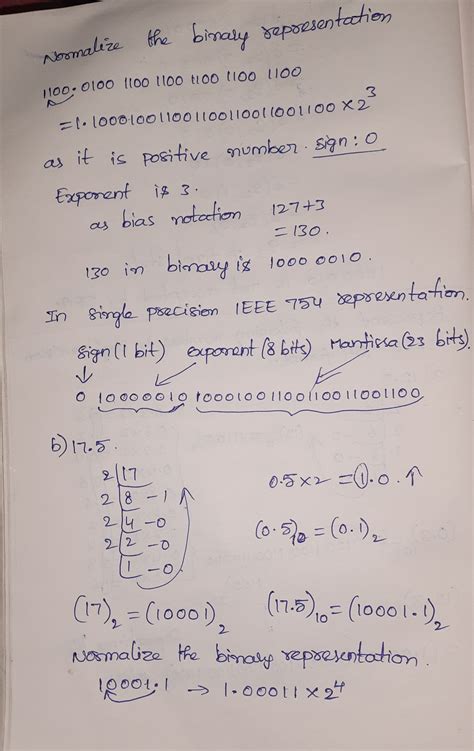 Normalize the binary representation
1100.0100 1100 1100 1100 1100 1100
= 1.10001001100110011001100110 0 × 2³
as it is positive number. sign : 0
Exponent is 3.
as bias notation 127+3
= 130.
130 in binary is 1000 0010.
In single precision IEEE 754 representation.
sign (1 bit) exponent (8 bits) Mantissa (23 bits)
0 10000010 10001001100110011001100
b) 17.5.
2 | 17
2 | 8 - 1
2 | 4 - 0
2 | 2 - 0
1 - 0
0.5 × 2 = 1.0. ↑
(0.5)₁₀ = (0.1)₂
(17)₂ = (10001)₂ (17.5)₁₀ = (10001.1)₂
Normalize the binary representation.
10001.1 → 1.00011 × 2⁴